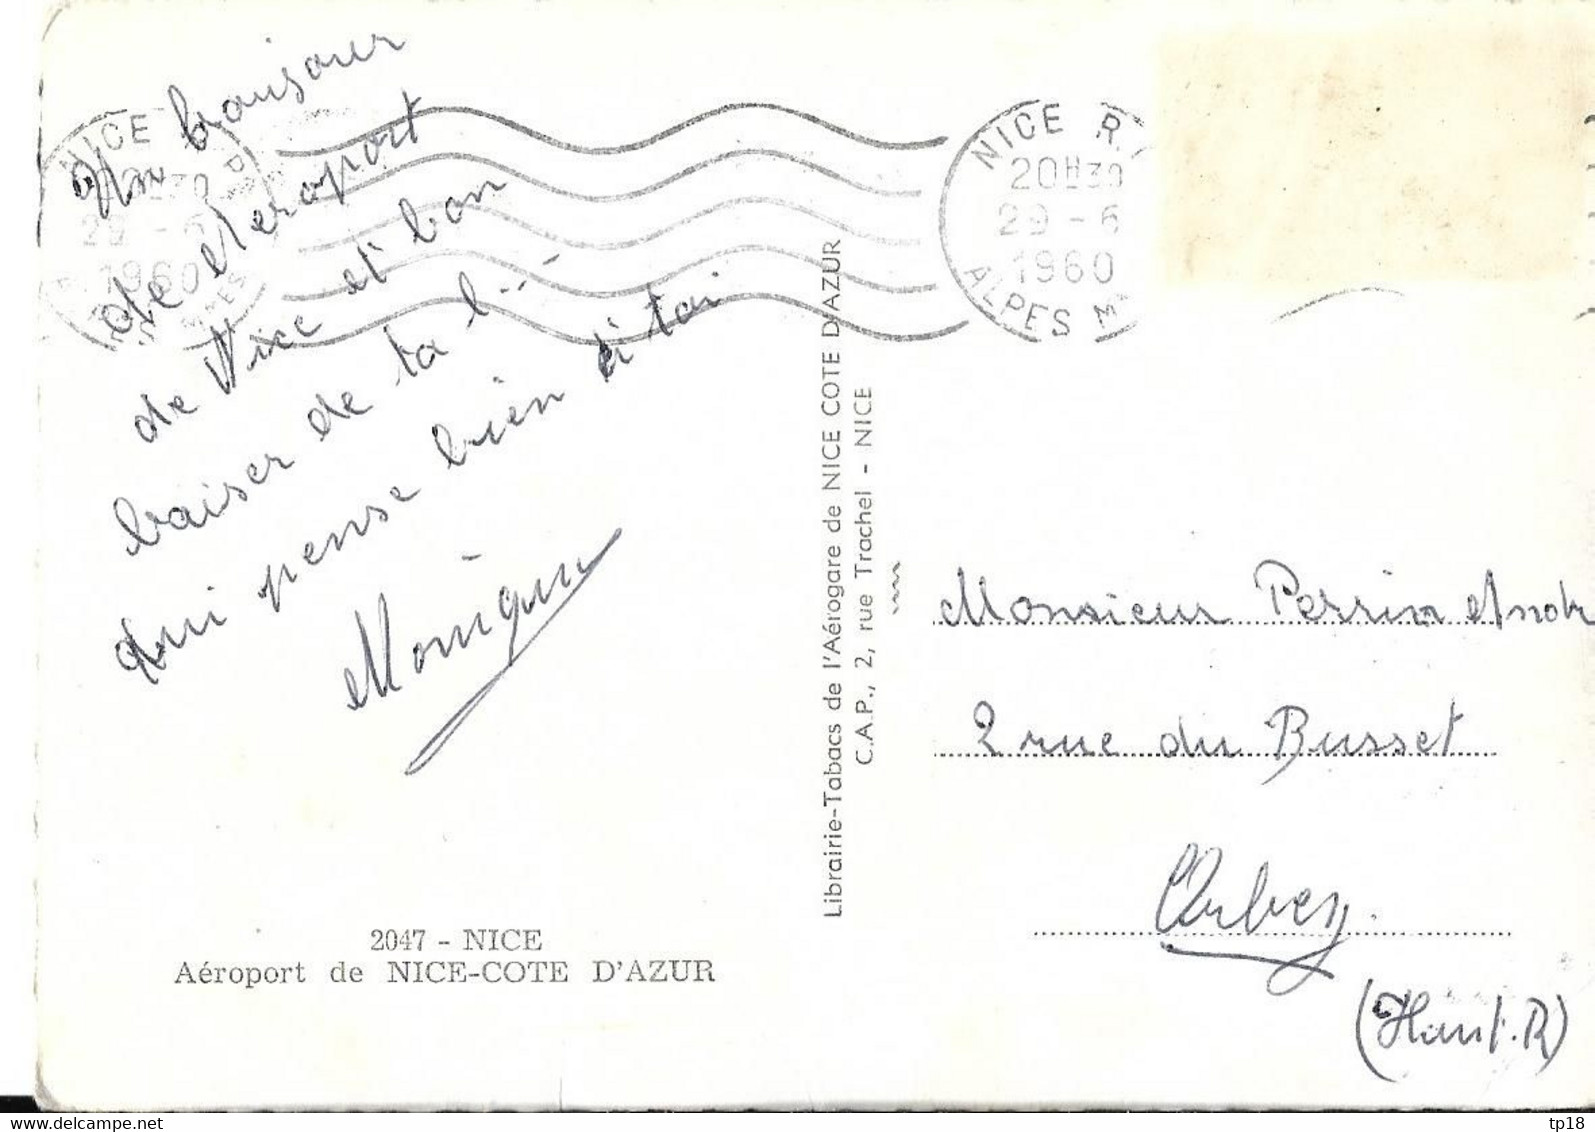 Un bonjour
de l'aeroport
de Nice et bon
baiser de ta
qui pense bien à toi
Monique
2047 - NICE
Aéroport de NICE-COTE D'AZUR
NICE
1960
Librairie-Tabacs de l'Aérogare de NICE COTE D'AZUR
C.A.P., 2, rue Trachel - NICE
NICE R.
20H30
29 - 6
1960
ALPES M
Monsieur Perrin
2 rue du Busset
Orbey
(Haut. R)
tp18